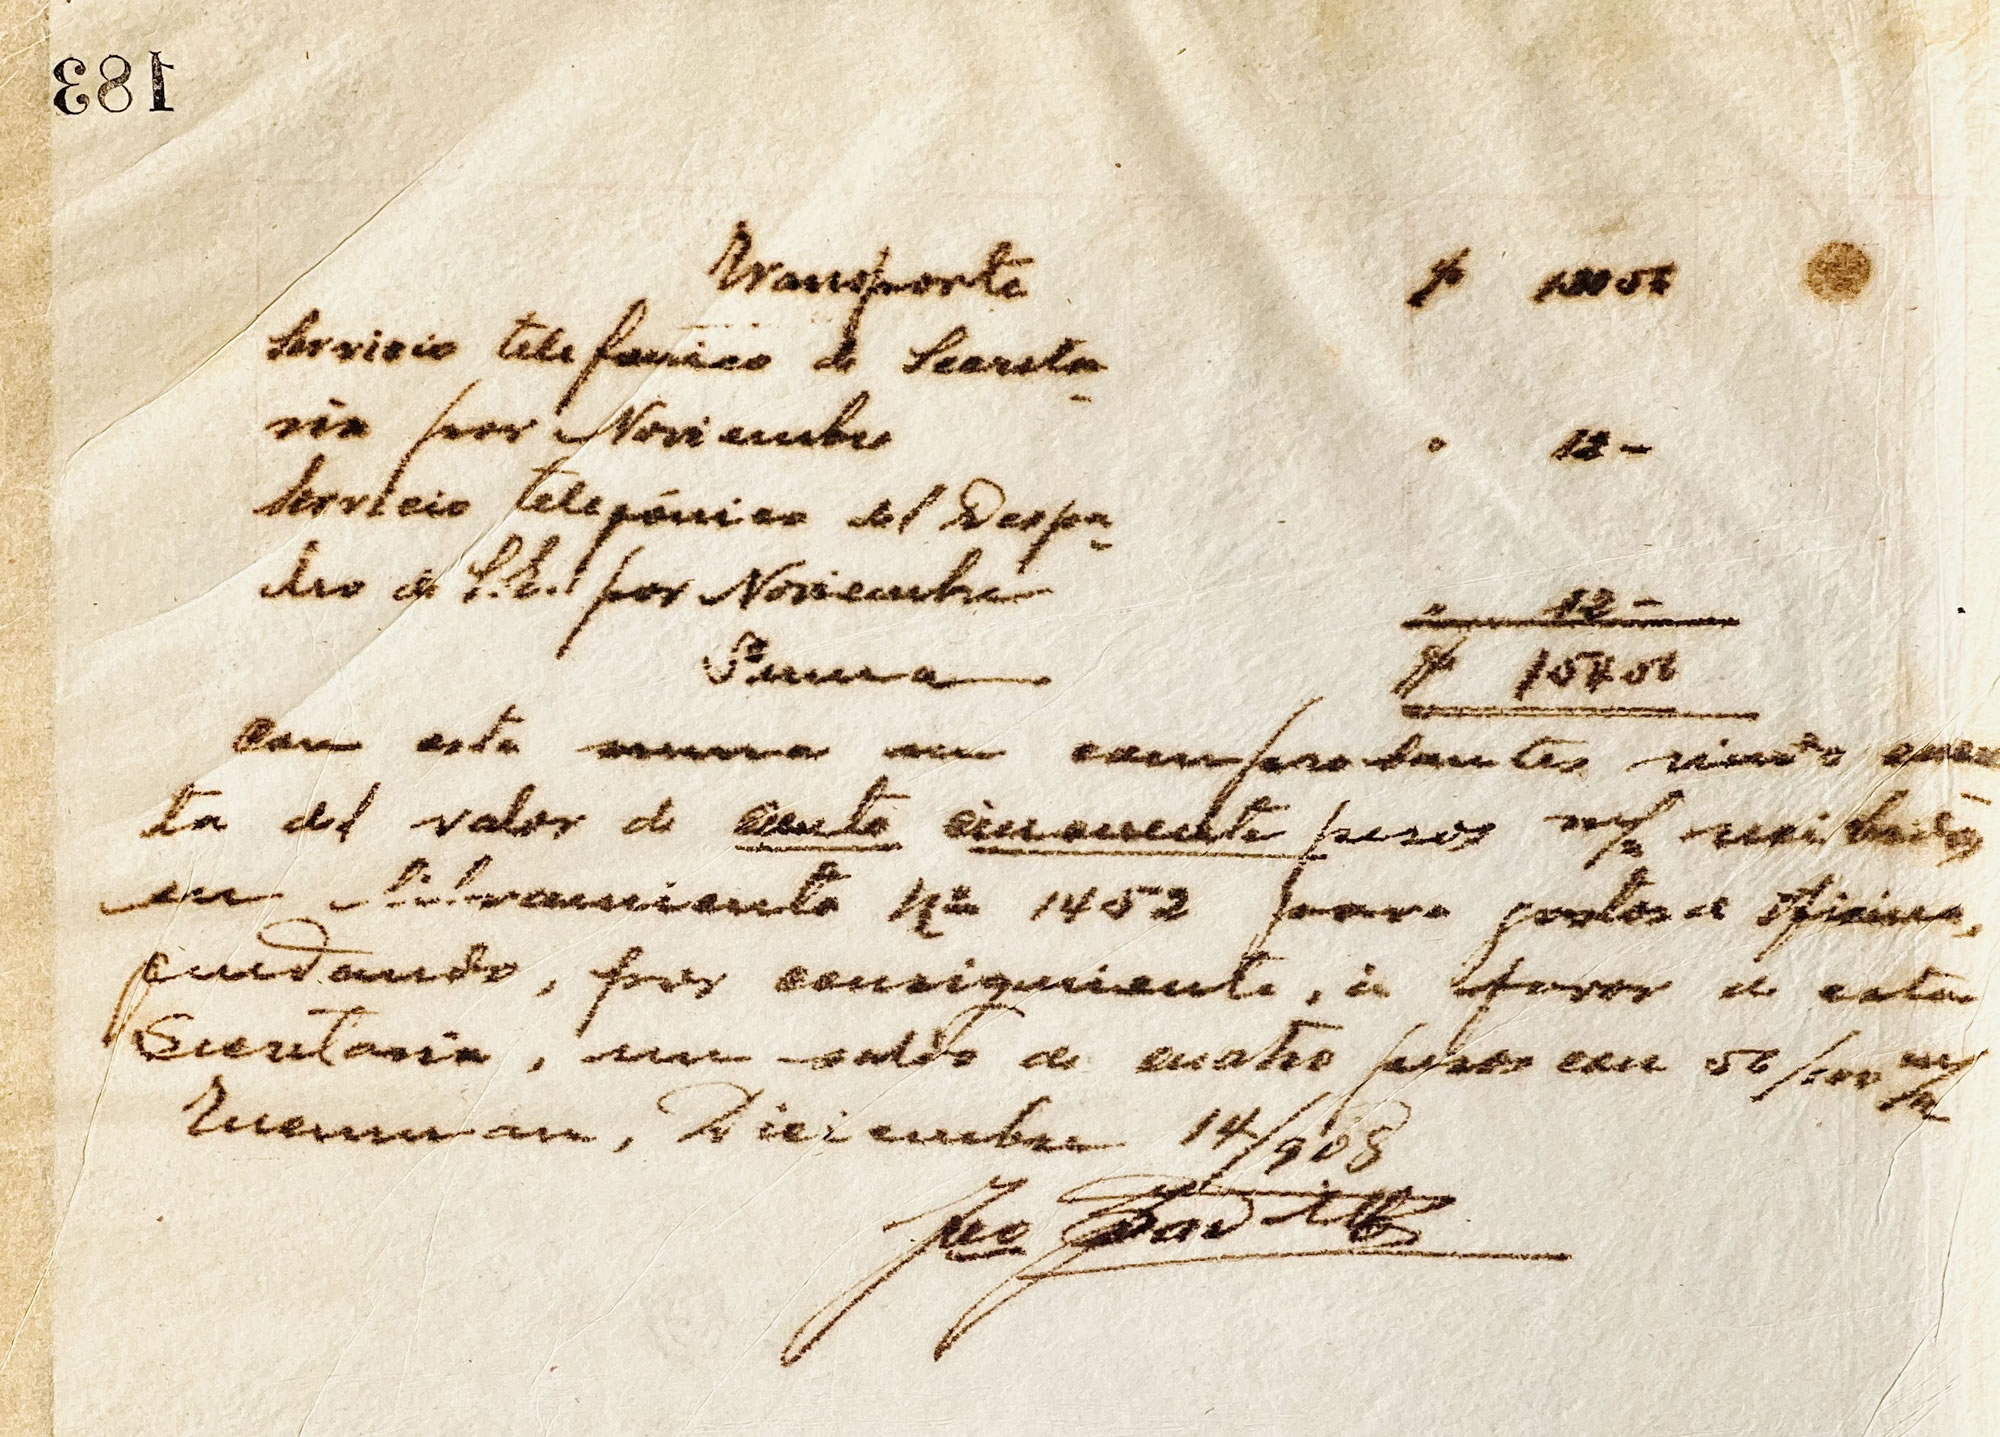 183
Transporte $ 130 56
Servicio telefonico de Secreta-
ria por Noviembre " 12 -
Servicio telefónico del Despa-
cho de S.E. por Noviembre " 12 -
Suma $ 154 56
Con esta suma en comprobantes rindo cuen
ta del valor de ciento cincuenta pesos m/n recibidos
en libramiento No 1452 para gastos de Oficina,
quedando, por consiguiente, á favor de esta
Secretaria, un saldo de cuatro pesos con 56/100 m/n
Tucuman, Diciembre 14/908